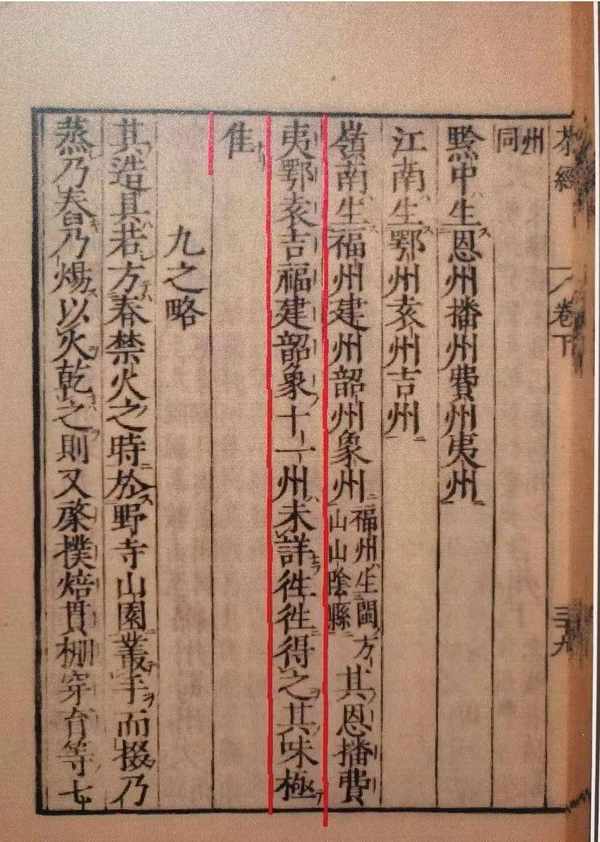 茶經
卷下
州
同
黔中生恩州播州費州夷州
江南生鄂州袁州吉州
嶺南生福州建州韶州象州福州生閩方山山陰縣其恩播費
夷鄂袁吉福建韶象十一州未詳徃徃得之其味極
佳
九之略
其造具若方春禁火之時於野寺山園叢手而掇乃
蒸乃舂乃煬以火乾之則又棨撲焙貫棚穿育等七